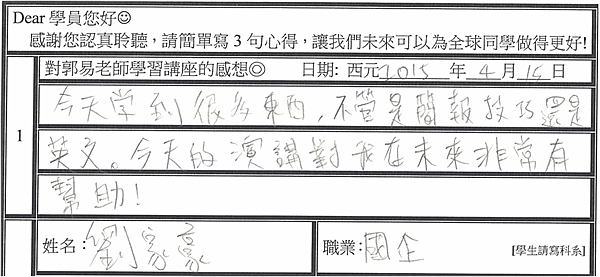 Dear 學員您好☺
感謝您認真聆聽，請簡單寫 3 句心得，讓我們未來可以為全球同學做得更好!
對郭易老師學習講座的感想◎ 日期: 西元 2015 年 4 月 15 日
1
今天学到很多東西，不管是簡報技巧還是
英文。今天的演講對我在未來非常有
幫助！
姓名： 劉家豪 職業： 國企 [學生請寫科系]